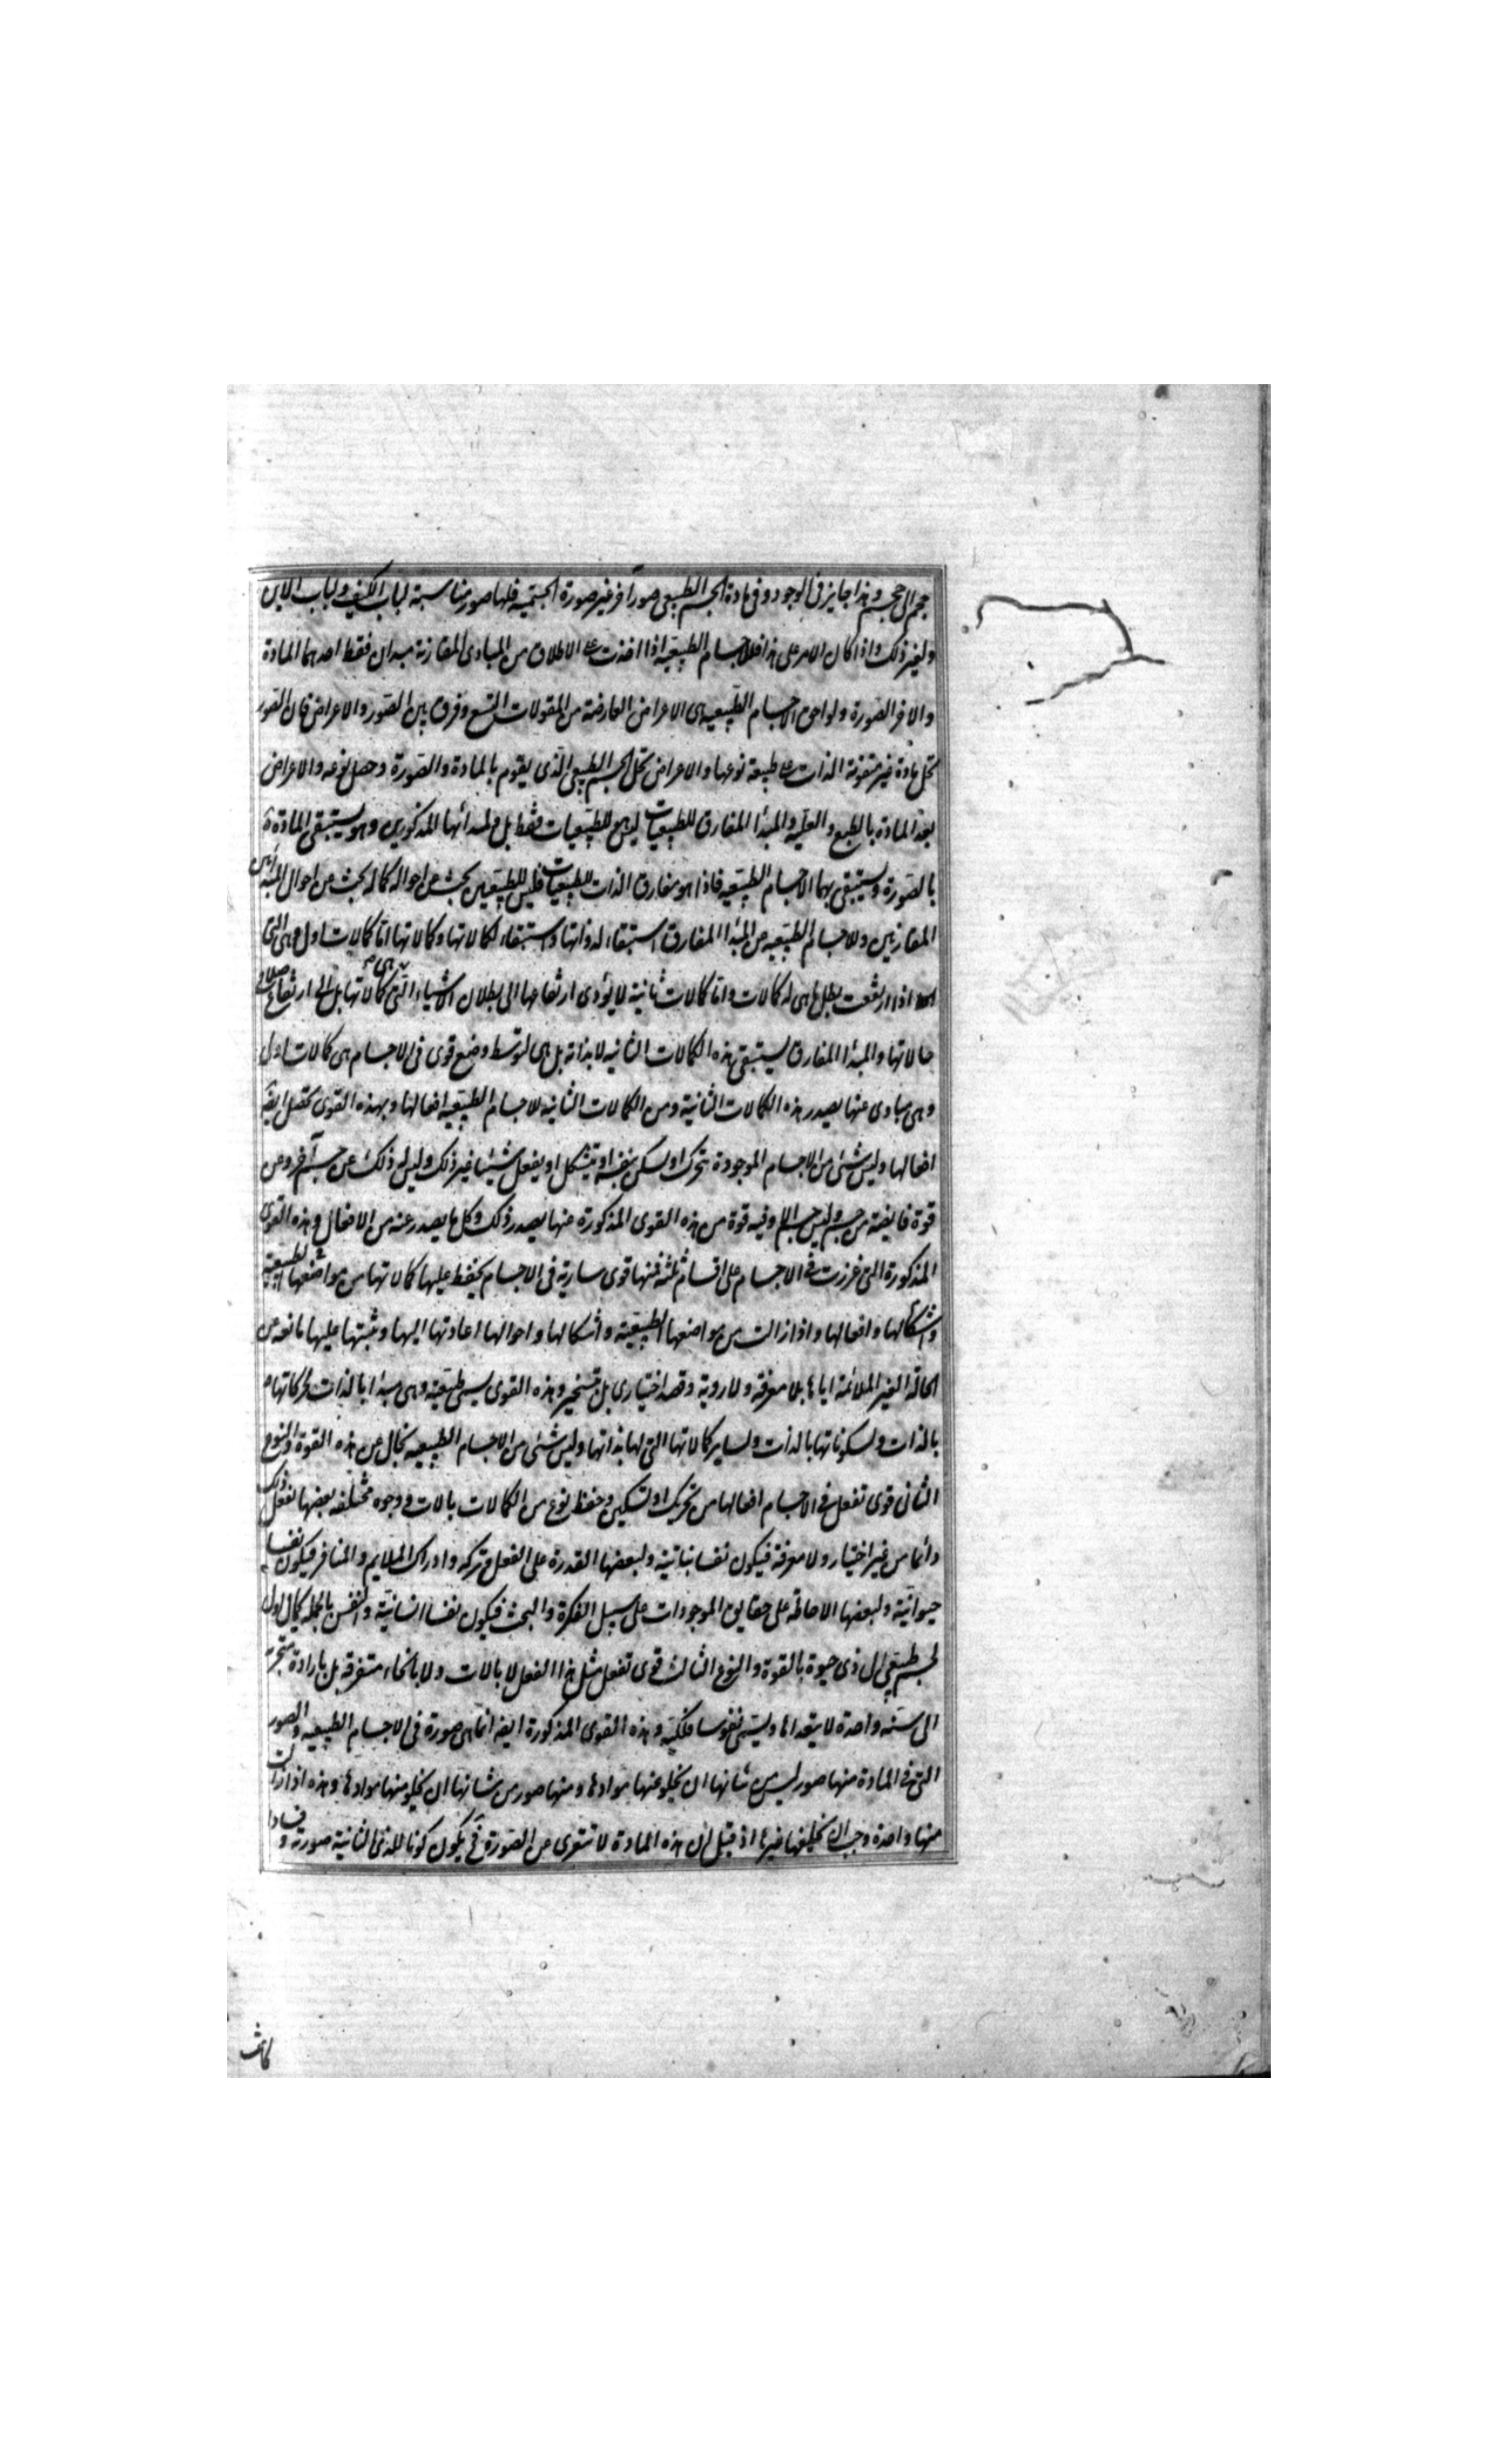 حجم الى حجم وهذا جايز فى الوجود وفى مادة الجسم الطبيعى صورا اخر غير صورة الجسمية فلها صور مناسبة لباب الكيف ولباب الاين
ولغير ذلك واذا كان الامر على هذا فللاجسام الطبيعية اذا اخذت على الاطلاق من المبادى المقارنة مبدان فقط احدهما المادة
والاخر الصورة ولواحق الاجسام الطبيعية هى الاعراض العارضة من المقولات التسع وفرق بين الصور والاعراض فان الصور
تحل مادة غير متقومة الذات على طبيعة نوعها والاعراض تحل الجسم الطبيعى الذى يقوم بالمادة والصورة وحصل نوعه والاعراض
بعد المادة بالطبع والعلية والمبدأ المفارق للطبيعيات ليس هو للطبيعيات فقط بل ولمبدائها المذكورين وهو يستبقى المادة
بالصورة ويستبقى بهما الاجسام الطبيعية فاذا هو مفارق الذات للطبيعيات فليس للطبيعيين بحث عن احواله كماله بحث عن احوال المبدأين
المقارنين وللاجسام الطبيعية من المبدأ المفارق استبقاء لذواتها واستبقاء لكمالاتها وكمالاتها اما كمالات اول وهى التى
اذا ارتفعت بطل ما هى له كمالات واما كمالات ثانية لا يؤدى ارتفاعها الى بطلان الاشياء التى هى كمالاتها بل الى ارتفاع صلاح
حالاتها والمبدأ المفارق يستبقى هذه الكمالات الثانية لا بذاته بل هى لتوسط وضع قوى فى الاجسام هى كمالات اول
وهى مبادى عنها يصدر هذه الكمالات الثانية ومن الكمالات الثانية للاجسام الطبيعية افعالها وبهذه القوى تحصل ايضا
افعالها وليس شئ من الاجسام الموجودة يتحرك او يسكن بنفسه او يتشكل او يفعل شيئا غير ذلك وليس له ذلك عن جسم آخر وعن
قوة فايضة من جسم وليس جسم الا وفيه قوة من هذه القوى المذكورة عنها يصدر ذلك وكل ما يصدر عنه من الافعال وهذه القوى
المذكورة التى غرزت فى الاجسام على اقسام ثلثه فمنها قوى سارية فى الاجسام يحفظ عليها كمالاتها من مواضعها الطبيعية
واشكالها وافعالها واذا زالت من مواضعها الطبيعية واشكالها واحوالها اعادتها اليها وثبتها عليها مانعه من
الحالة الغير الملائمة اياها بلا معرفة ولا روية وقصد اختيارى بل تسخير وهذه القوى يسمى طبيعية وهى مبدأ بالذات لحركاتها
بالذات ولسكوناتها بالذات ولساير كمالاتها التى لها بذاتها وليس شئ من الاجسام الطبيعية بخال عن هذه القوة والنوع
الثانى قوى تفعل فى الاجسام افعالها من تحريك او تسكين وحفظ نوع من الكمالات بالات ووجوه مختلفه بعضها يفعل ذلك
دائما من غير اختيار ولا معرفة فيكون نفسا نباتية ولبعضها القدرة على الفعل وتركه وادراك الملايم والمنافر فيكون نفسا
حيوانية ولبعضها الاحاطة على حقايق الموجودات على سبيل الفكرة والبحث فيكون نفسا انسانية والنفس بالجملة كمال اول
لجسم طبيعى الى ذى حيوة بالقوة والنوع الثالث قوى تفعل مثل هذا الفعل لا بالات ولا بانحاء متفرقه بل بارادة متجهة
الى سنه واحدة لا يتعداها ويسمى نفوسا فلكية وهذه القوى المذكورة ايضا انما هى صورة فى الاجسام الطبيعيه والصور
التى فى المادة منها صور ليس من شانها ان يخلو عنها موادها ومنها صور من شانها ان يخلو منها موادها وهذه اذا زالت
منها واحدة وجب ان يخلفها غيرها اذ قيل ان هذه المادة لا تتعرى عن الصورة فح يكون كونا للذى الثانية صورته وفسادا